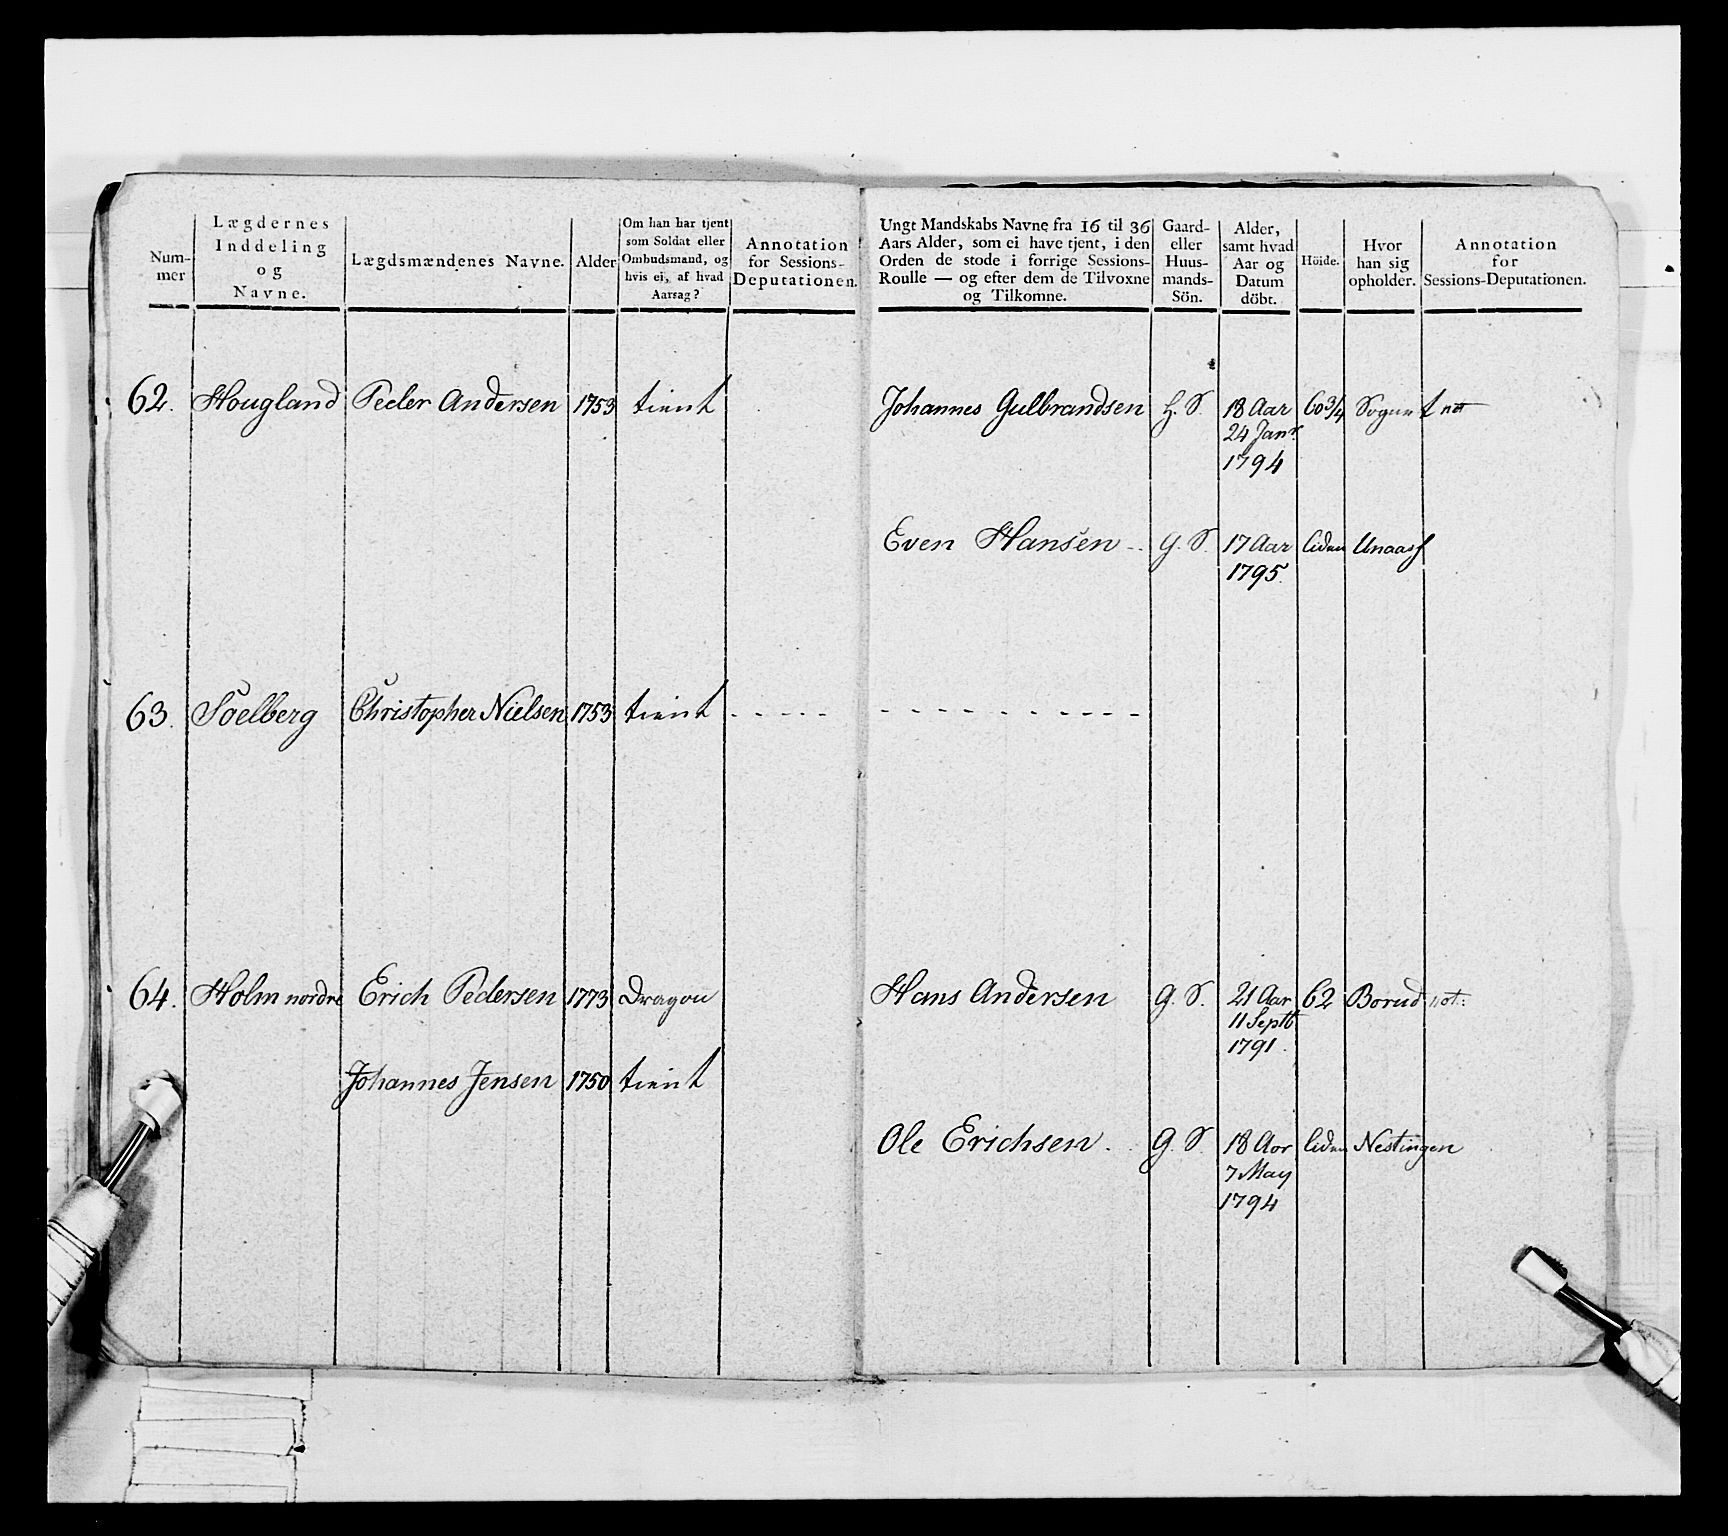 Num-
mer
Lægdernes
Inddeling
og
Navne.
Lægdsmændenes Navne.
Alder
Om han har tjent
som Soldat eller
Ombudsmand, og
hvis ei, af hvad
Aarsag?
Annotation
for Sessions-
Deputationen.
62. Hougland Peder Andersen 1753 tient
63. Soelberg Christopher Nielsen 1753 tient
64. Holm nordre Erich Pedersen 1773 Dragon
Johannes Jensen 1750 tient
Ungt Mandskabs Navne fra 16 til 36
Aars Alder, som ei have tjent, i den
Orden de stode i forrige Sessions-
Roulle — og efter dem de Tilvoxne
og Tilkomne.
Gaard-
eller
Huus-
mands-
Sön.
Alder,
samt hvad
Aar og
Datum
döbt.
Höide.
Hvor
han sig
opholder.
Annotation
for
Sessions-Deputationen.
Johannes Gulbrandsen H. S. 18 Aar 60 3/4 Sognet not
24 Janr.
1794
Even Hansen G. S. 17 Aar liden
1795.
Hans Andersen G. S. 21 Aar 62 Borud not:
11 Septb
1791.
Ole Erichsen. G. S. 18 Aar liden Nestingen
7 May
1794